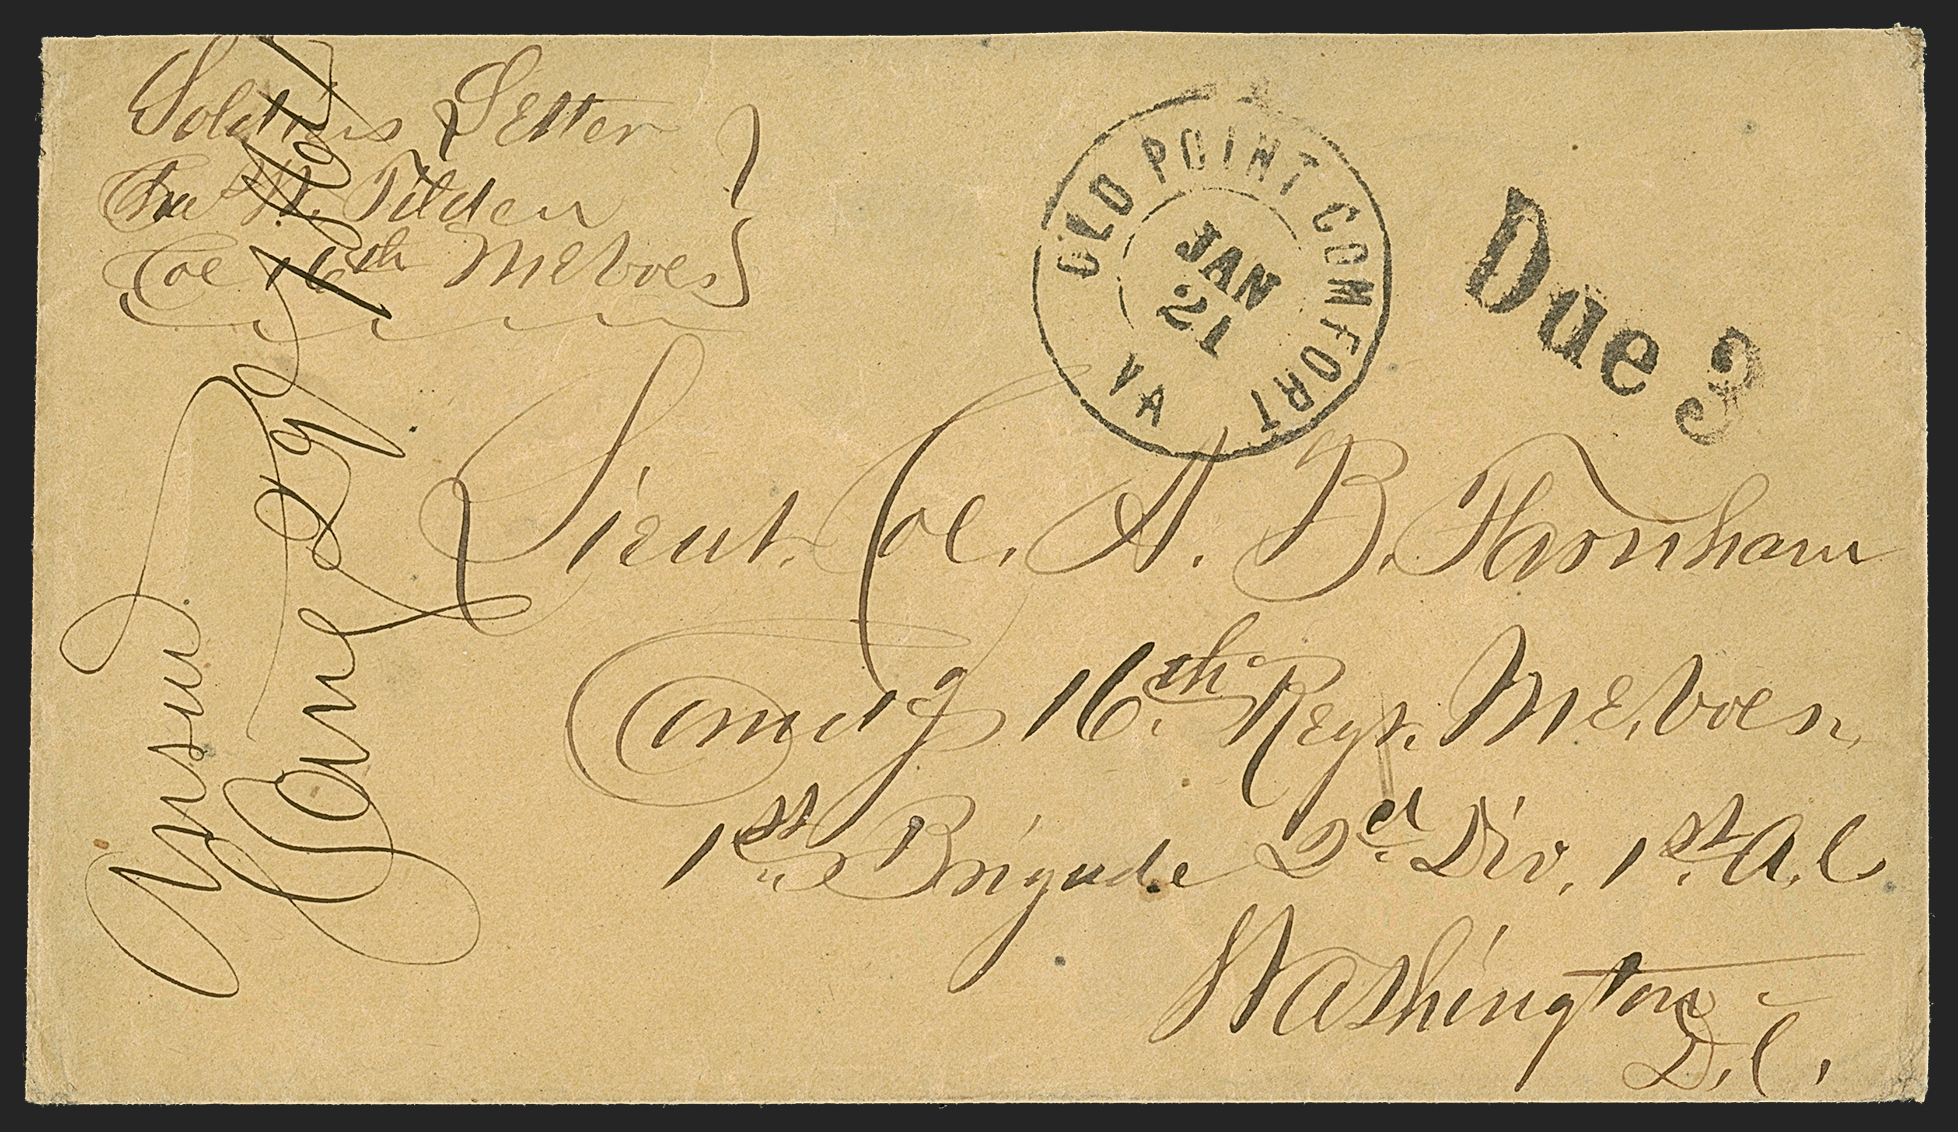 Soldiers Letter
Chs W. Tilden
Col 16th Me Vols
OLD POINT COMFORT
JAN
21
VA
Due 3
Lieut. Col. A. B. Farnham
Comdg 16th Regt. Me. Vols.
1st Brigade 2d Div. 1st A. C
Washington
D. C.